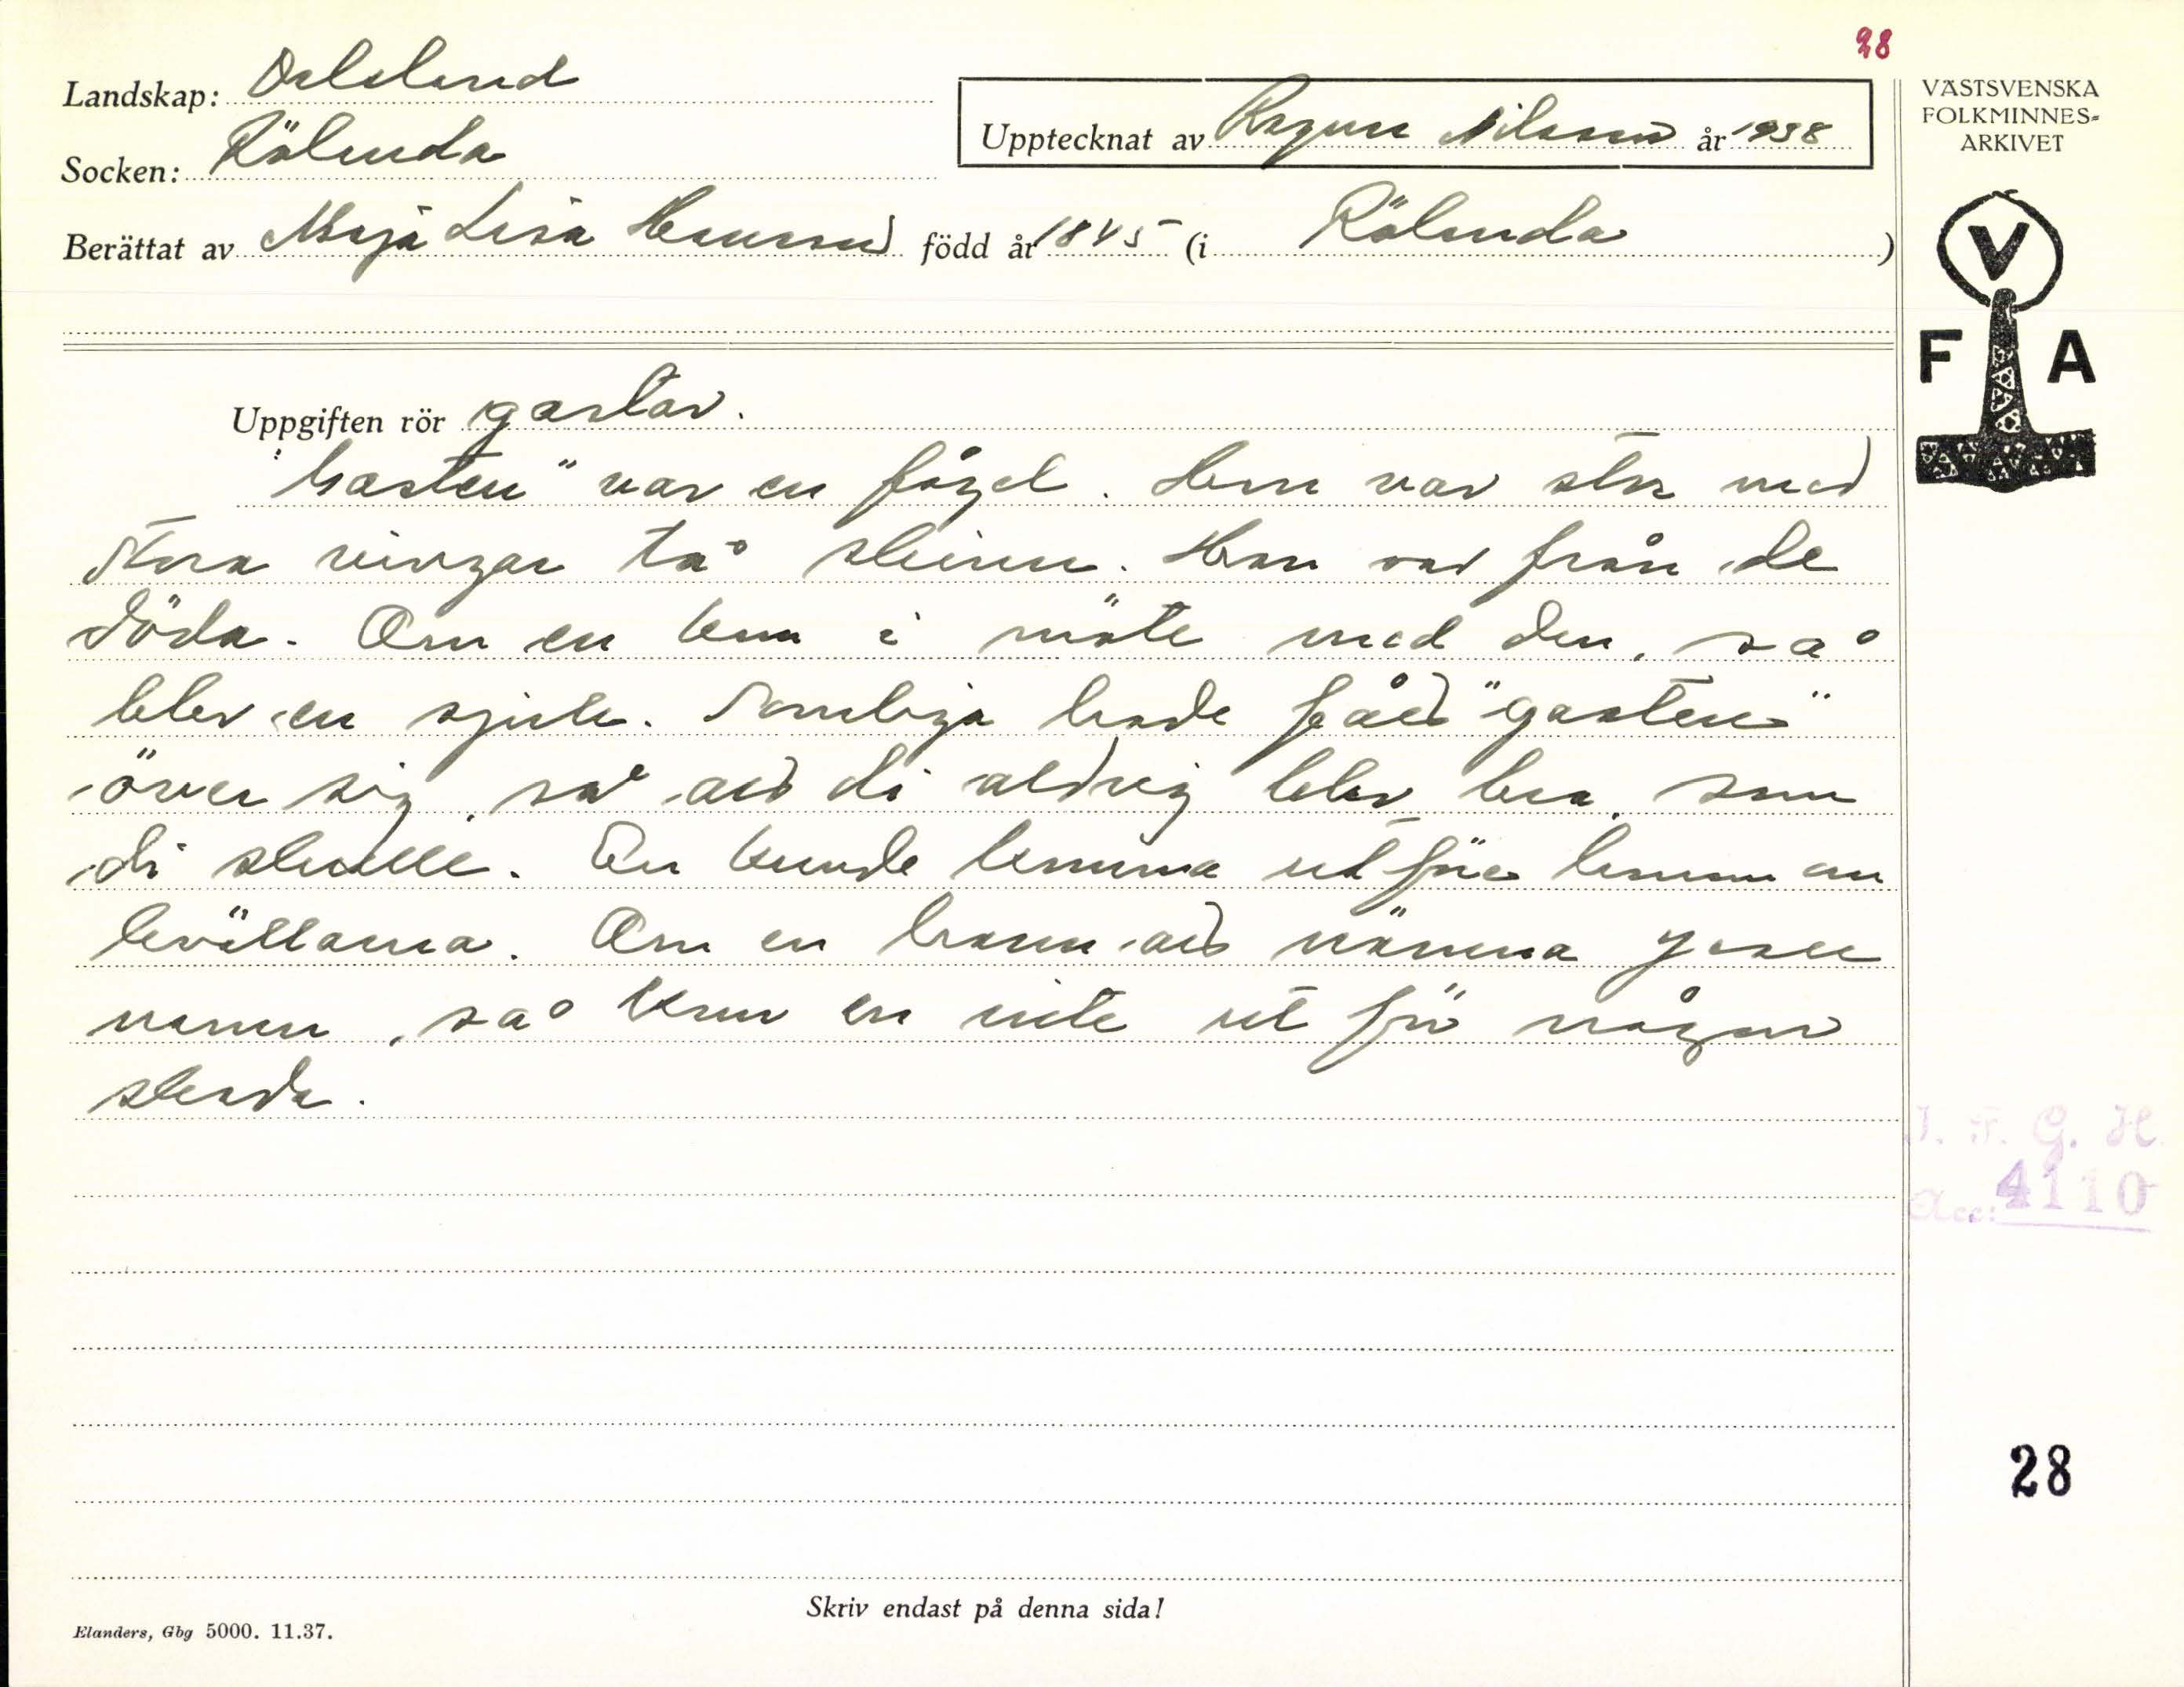 28
Landskap: Dalsland
Upptecknat av Ragnar Nilsson år 1938
VÄSTSVENSKA
FOLKMINNES=
ARKIVET
Socken: Rölanda
Berättat av Maja Lisa Hansson född år 1845 (i Rölanda)
V
F A
Uppgiften rör gastar.
"Gasten" var en fågel. Han var stor med
stora vingar tå skinn. Han var från de
döda. En kom i möte med den, så
blev en sjuk. Somliga hade fåd "gasten"
över sig, så ad di aldrig blev bra, som
di skulle. En kunde komma ut för honom om
kvällarna. Om en hann ad nämna Jesu
namn, så kom en inte ut för någon
skada.
J. F. G. H.
Acc: 4110
28
Skriv endast på denna sida!
Elanders, Gbg 5000. 11.37.